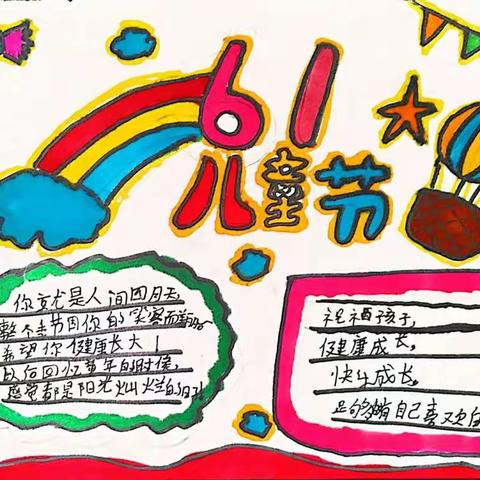 61
儿童节
你就是人间四月天,
整个季节因你的
希望你健康长大！
以后回忆童年的时候,
感觉都是阳光灿烂的日子
祝福孩子,
健康成长,
快乐成长,
足够拥自己喜欢